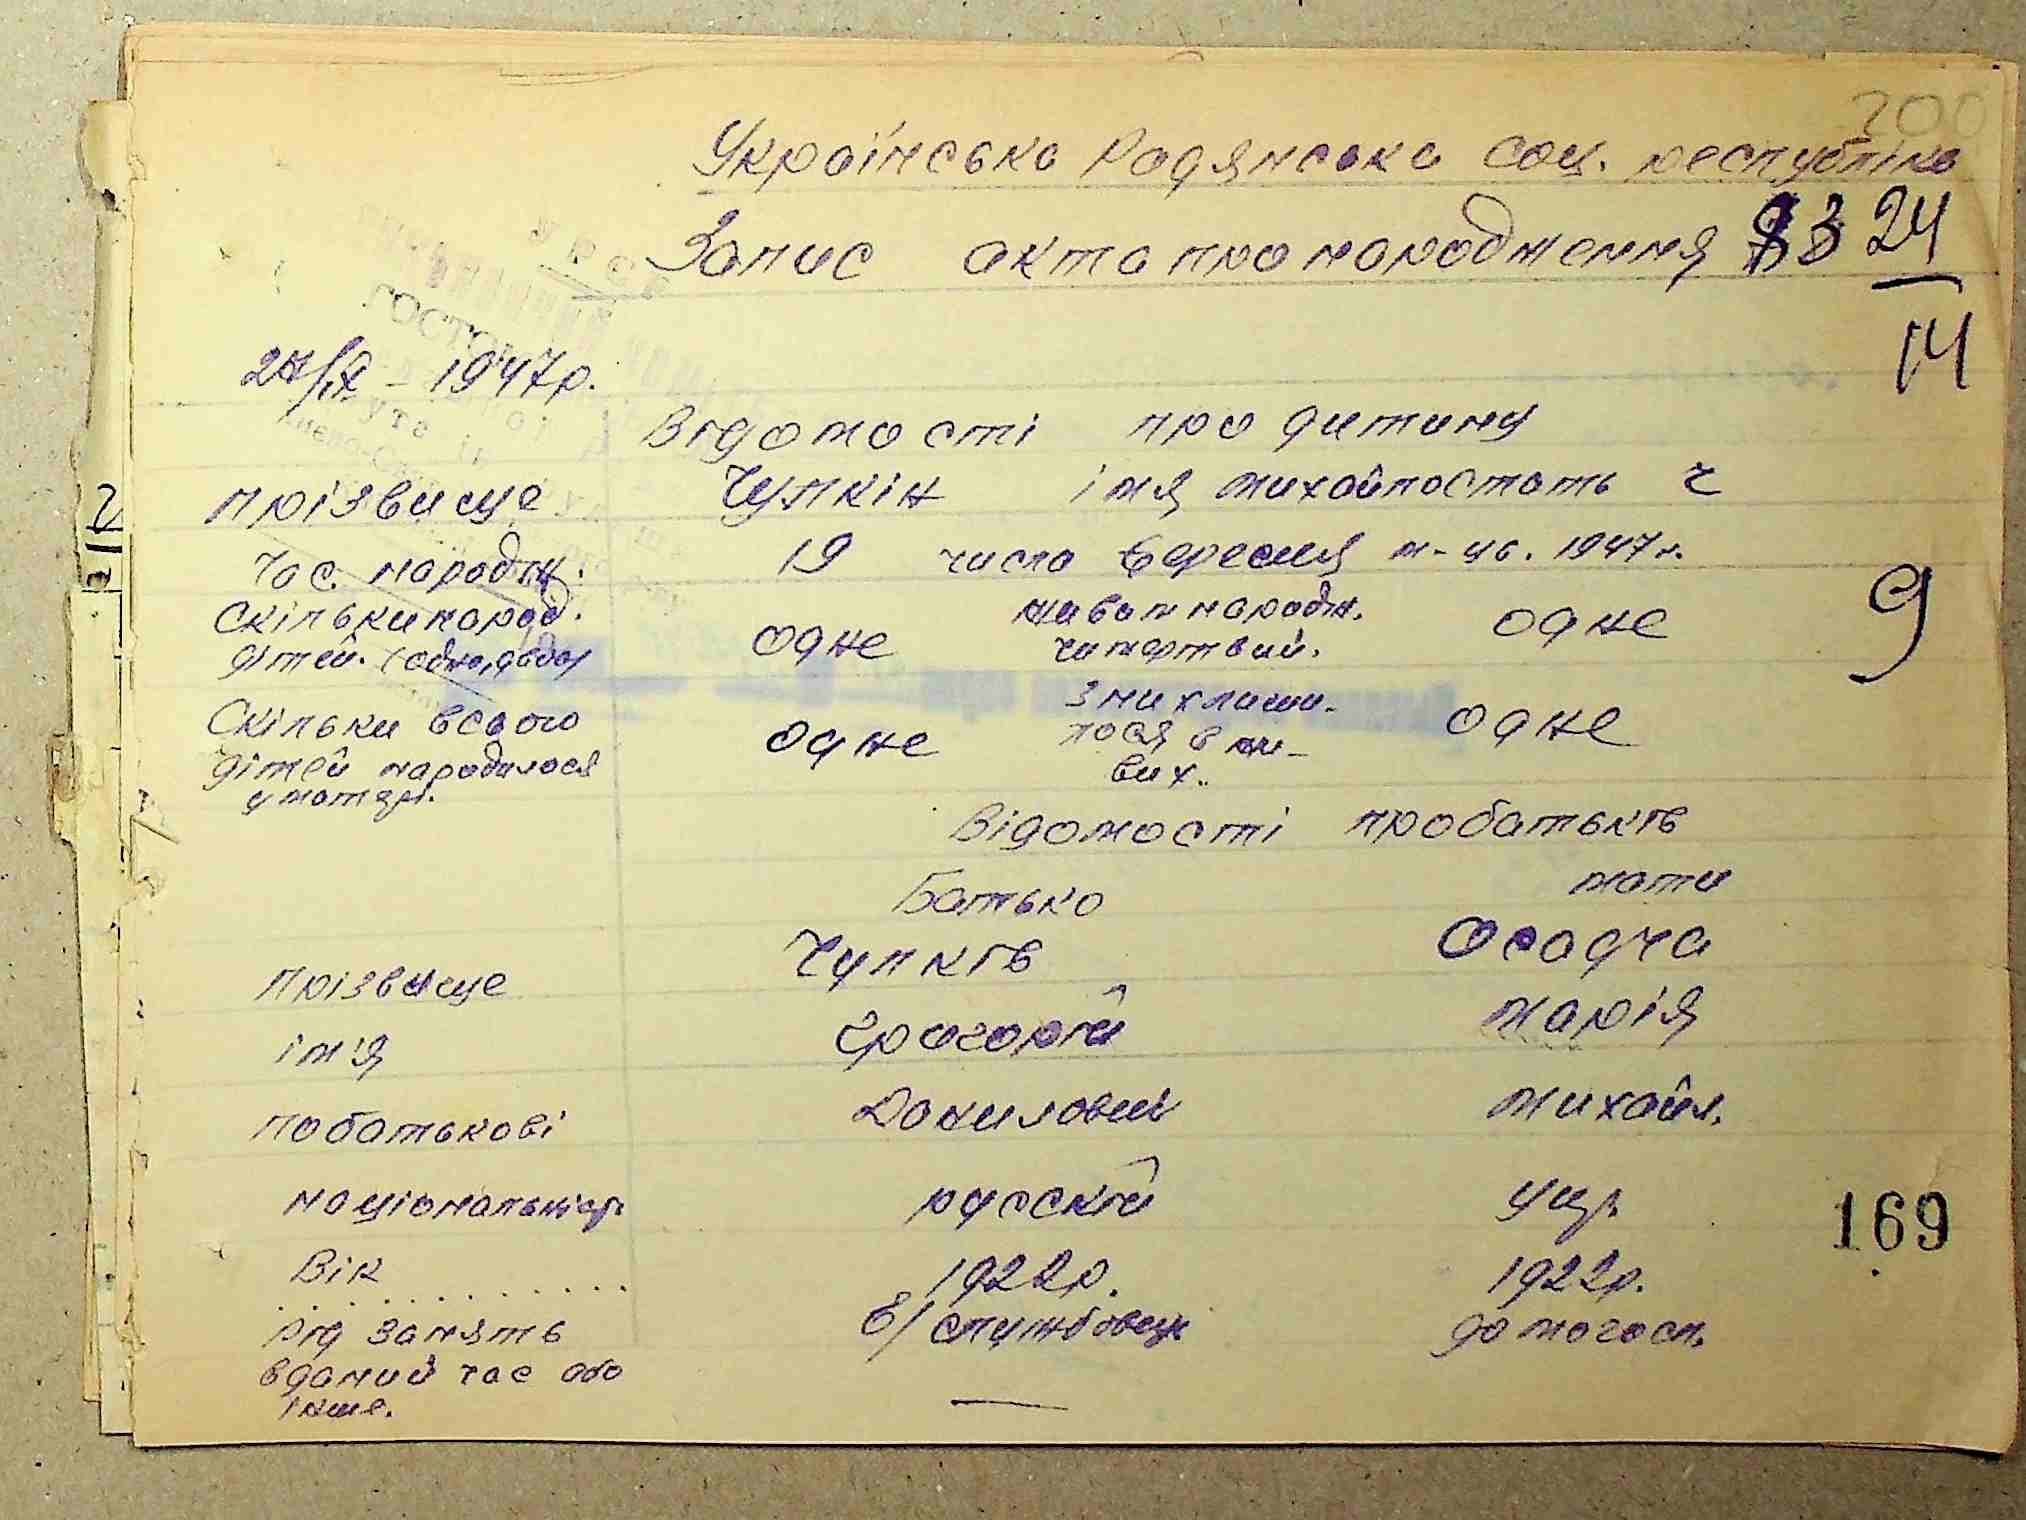 200
Українська Радянська Соц. республіка
Запис акта про народження 24
14
27/IX - 1947р.
Відомості про дитину
Прізвище Чупкін імя Михайло стать ч
Час. народж. 19 числа вересня м-ця. 1947р.
Скільки народ. дітей. (одно, двое) одне живим народж. чи мертвий. одне
9
Скільки всього дітей народилося у матері. одне з них лиши- лося в жи- вих.. одне
Відомості про батьків
Батько мати
Прізвище Чупків Осадча
імʼя Григорій Марія
по батькові Данилович Михайл.
національність русскій укр.
169
Вік 1922р. 1922р.
рід занять в даний час або інше. б/службовець домогосп.